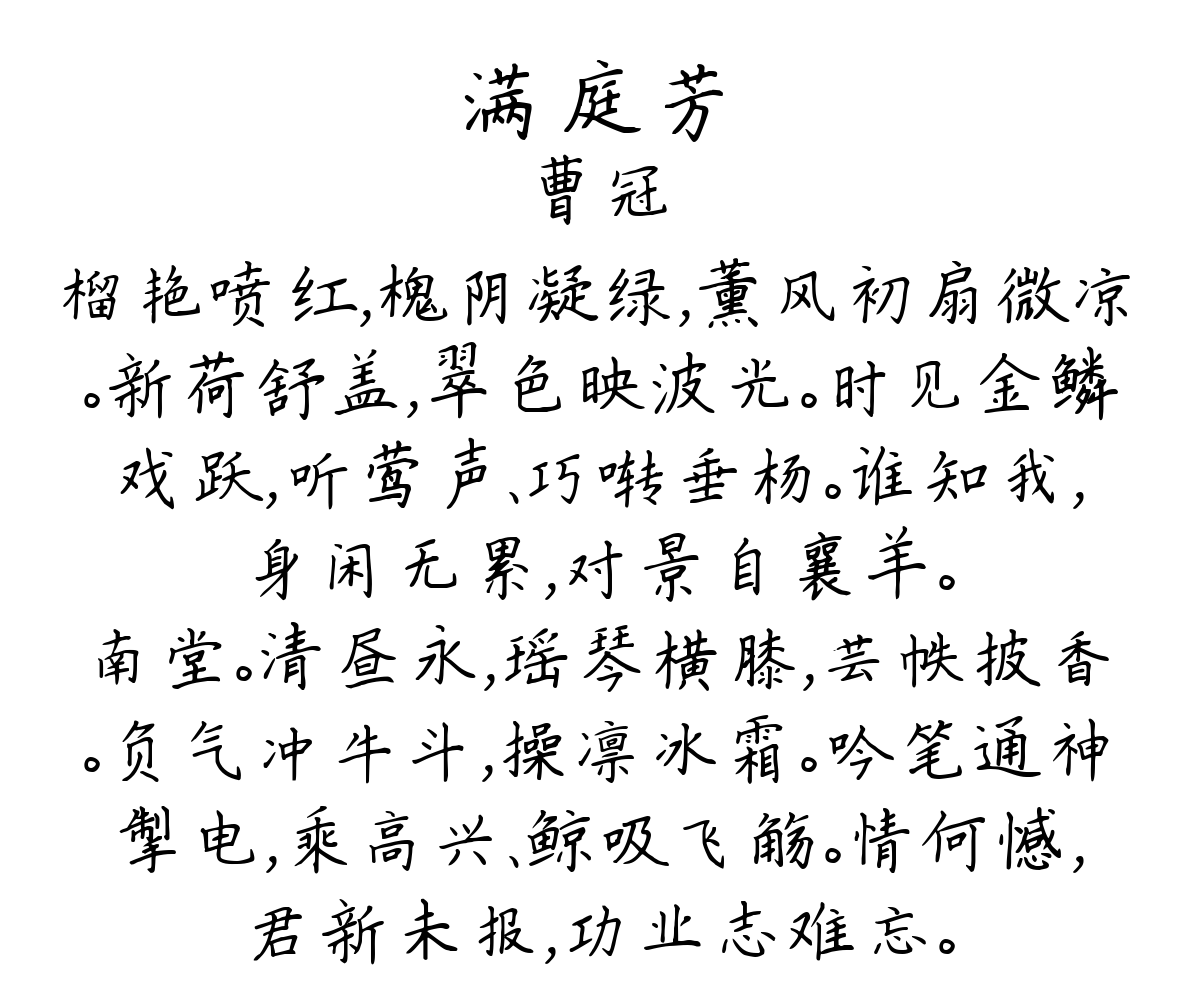 满庭芳
曹冠
榴艳喷红,槐阴凝绿,薰风初扇微凉
。新荷舒盖,翠色映波光。时见金鳞
戏跃,听莺声、巧啭垂杨。谁知我,
身闲无累,对景自襄羊。
南堂。清昼永,瑶琴横膝,芸帙披香
。负气冲牛斗,操凛冰霜。吟笔通神
掣电,乘高兴、鲸吸飞觞。情何憾,
君新未报,功业志难忘。